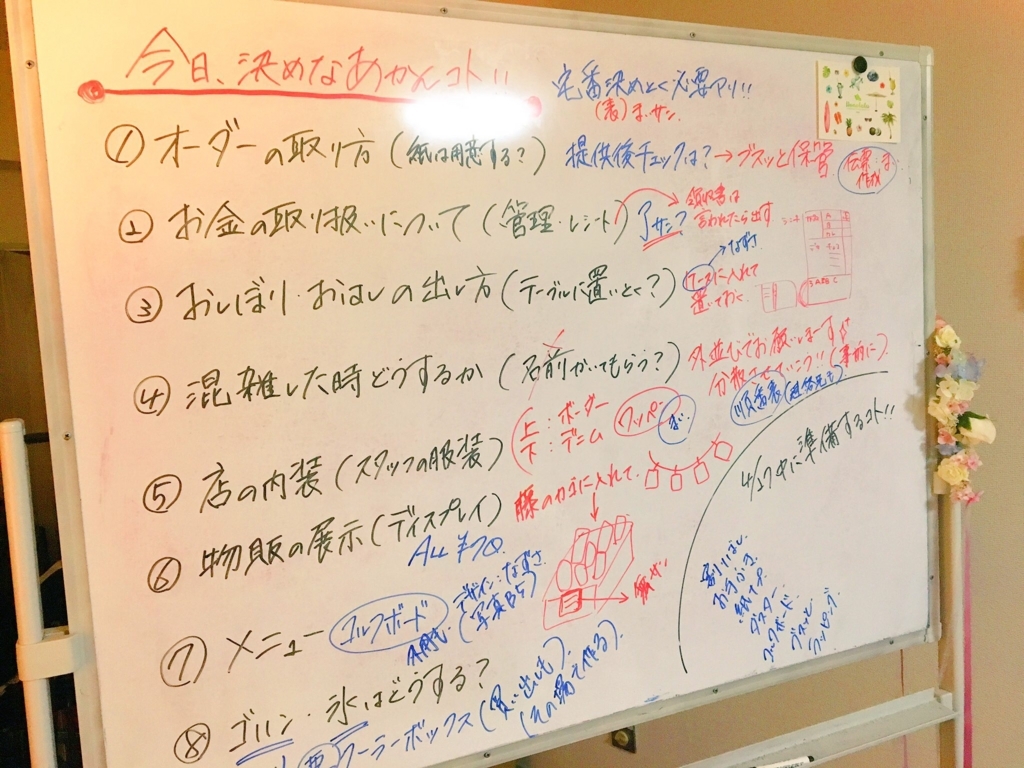 今日、決めなあかんコト!!
宅番決めとく必要アリ!!
① オーダーの取り方 (紙は用意する?)
提供後チェックは? → ブスッと保管
② お金の取り扱いについて (管理・レシート)
領収書は
言われたら出す
③ おしぼり・おはしの出し方 (テーブルに置いとく?)
なずさ
ケースに入れて
置いておく
④ 混雑した時どうするか (名前かいてもらう?)
外並びでお願いしまーす
分散させていこう!! (事前に)
順番表
⑤ 店の内装 (スタッフの服装)
上:ボーダー
下:デニム
ワッペン
⑥ 物販の展示 (ディスプレイ)
藤のカゴに入れて
ALL ¥70
⑦ メニュー
コルクボード
デザイン:なずさ
(写真BS)
⑧ ゴハン・氷はどうする?
クーラーボックス (買い出しも)
(その場で作る)
4/17中に準備するコト!!
割りばし
おてふき
コルクボード
ブスッと
ワッピング